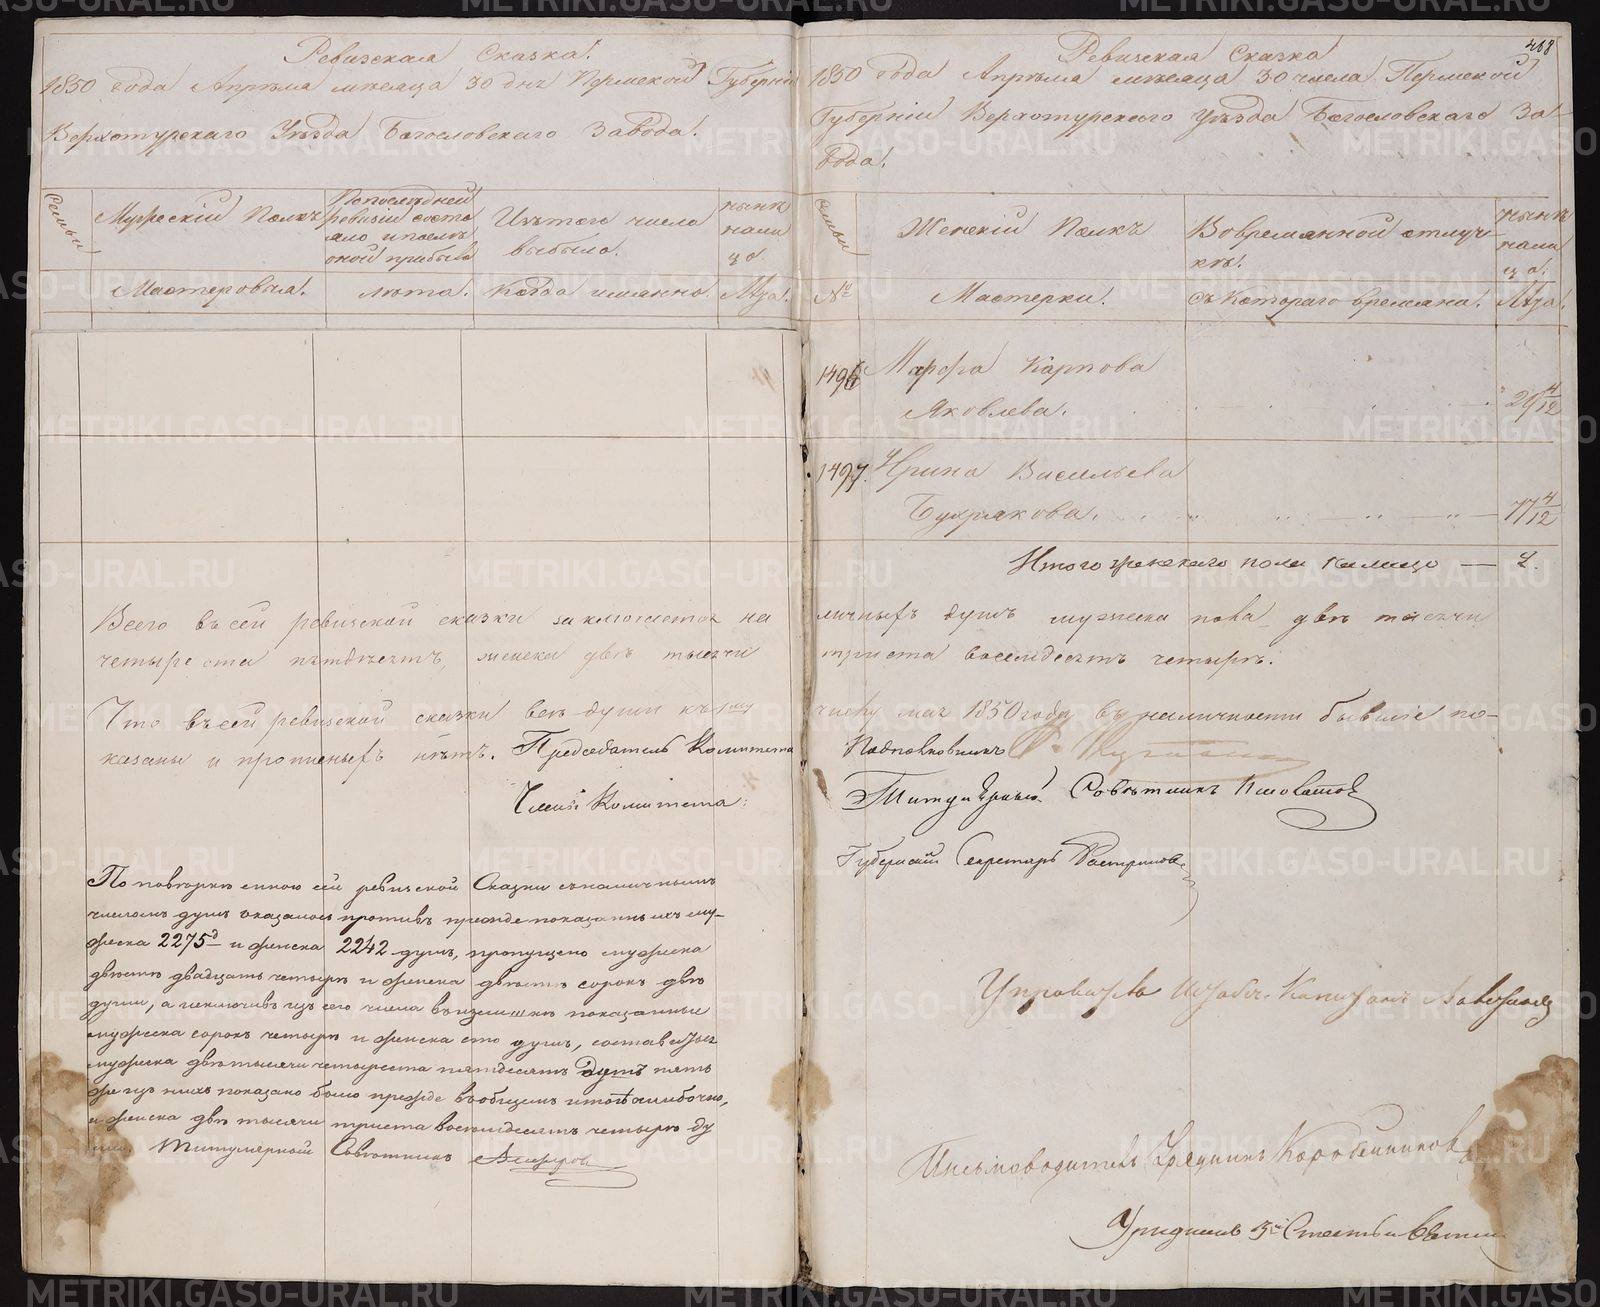 Ревизская Сказка.
1850 года Апреля месяца 30 дня Пермской Губернии
Верхотурскаго Уезда Богословскаго Завода.
Семьи
Мужеский Полъ
По последней
ревизии состо
яло и после
оной прибыло
Изъ того числа
выбыло.
ныне
нали
цо
Мастеровыя.
лета.
Когда именно.
Лета.
Всего въ сей ревизской сказке заключается на
четыре ста пятдесятъ, женска две тысячи
Что въ сей ревизской сказки все души къ 1му
казаны и прописныхъ нетъ. Председатель Комитета
Члены Комитета:
По поверке мною сей ревизской Сказки съ наличнымъ
числомъ душъ оказалось противъ прежде показанныхъ му-
жеска 2275д и женска 2242 душъ, пропущено мужеска
двести двадцать четыре и женска двести сорок две
души, а исключивъ изъ сего числа въ излишке показанные
мужеска сорокъ четыре и женска сто душъ, составилось
мужеска две тысячи четыреста пятдесятъ душъ пять
же изъ нихъ показано было прежде въ общемъ итоге ошибочно,
и женска две тысячи триста восемдесятъ четыре ду
ши. Титулярной Советникъ
468
Ревизская Сказка
1850 года Апреля месяца 30 числа Пермской
Губернии Верхотурскаго Уезда Богословскаго За-
вода.
Семьи
Женский Полъ
Во временной отлуч-
ке.
ныне
нали
цо.
№
Мастерки.
съ Котораго времяни.
Лета.
1496 Марфа Карпова
Яковлева. 29 4/12
1497. Ирина Васильева
Бухрякова. 77 4/12
Итого женскаго пола налицо — 2.
личныхъ душъ мужеска пола две тысячи
триста восемдесятъ четыре.
числу мая 1850 году въ наличности бывшие по-
Подполковникъ
Титулярный Советникъ
Губернский Секретарь
Управитель Штабс-Капитанъ
Письмоводитель Урядникъ Коробейниковъ
Урядникъ 3й Статьи
METRIKI.GASO-URAL.RU